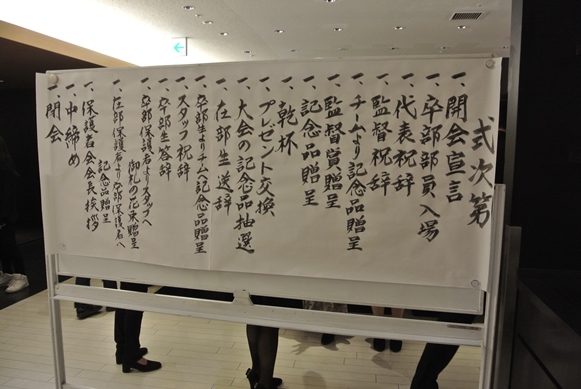 式次第
一、開会宣言
一、卒部部員入場
一、代表祝辞
一、監督祝辞
一、チームより記念品贈呈
一、監督賞贈呈
一、記念品贈呈
一、乾杯
一、プレゼント交換
一、大会の記念品抽選
一、在部生送辞
一、卒部生よりチームへ記念品贈呈
一、スタッフ祝辞
一、卒部生答辞
一、卒部保護者よりスタッフへ
御礼の花束贈呈
一、在部保護者より卒部保護者へ
記念品贈呈
一、保護者会会長挨拶
一、中締め
一、閉会